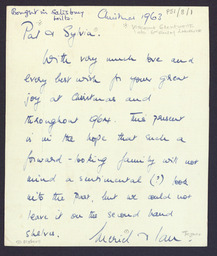 Bought in Salisbury
Wilts.
Christmas 1963
PS1/8/1
Pat & Sylvia.
With very much love and
every best wish for your great
joy at Christmas and
throughout 1964. This present
is in the hope that such a
forward-looking family will not
mind a sentimental (?) look
into the Past, but we could not
leave it on the second hand
shelves.